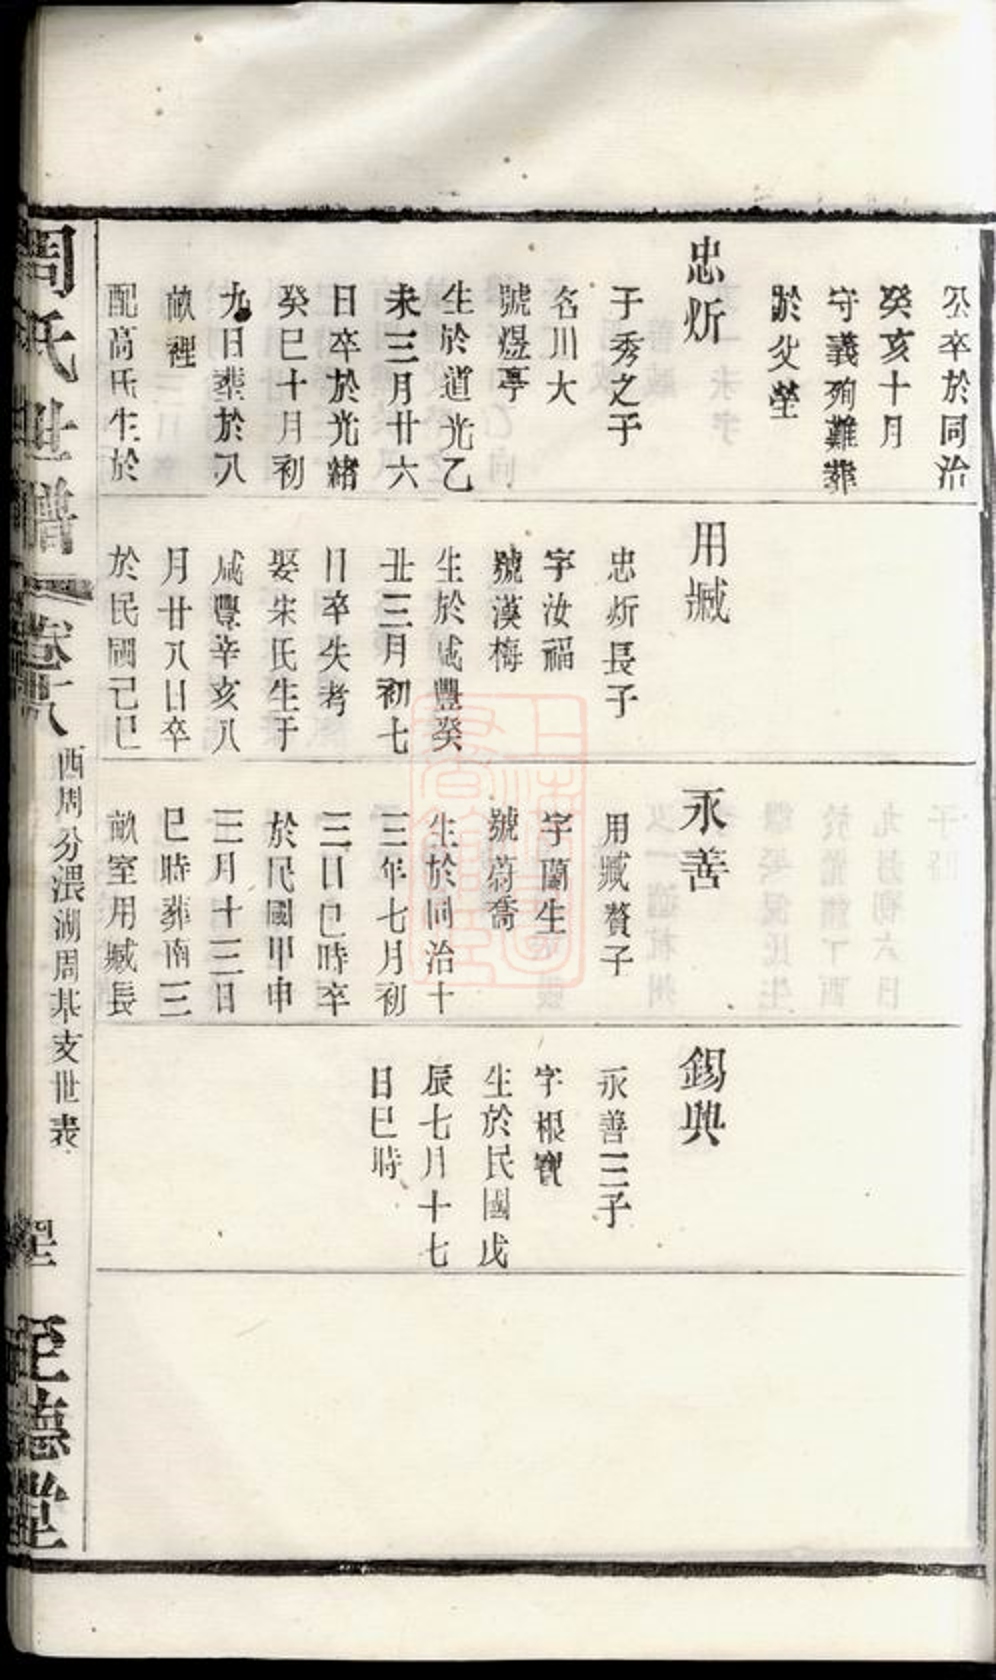 公卒於同治
癸亥十月
守義殉難葬
於父塋
忠炘
于秀之子
名川大
號煜亭
生於道光乙
未三月廿六
日卒於光緒
癸巳十月初
九日葬於八
畝裡
配高氏生於
用臧
忠炘長子
字汝福
號漢梅
生於咸豐癸
丑三月初七
日卒失考
娶朱氏生于
咸豐辛亥八
月廿八日卒
於民國己巳
永善
用臧贅子
字蘭生
號蔚喬
生於同治十
三年七月初
三日巳時卒
於民國甲申
三月十三日
巳時葬南三
畝室用臧長
錫興
永善三子
字根寶
生於民國戊
辰七月十七
日巳時
周氏世譜
卷十八
西周分澴湖周基支世表
至德堂